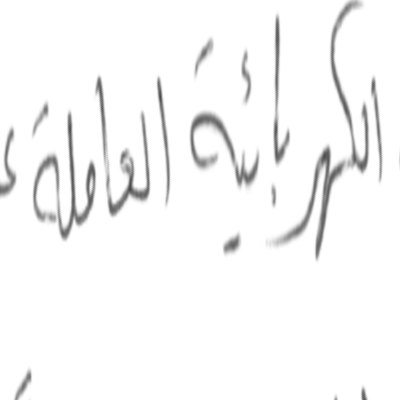 الكهربائية العاملة